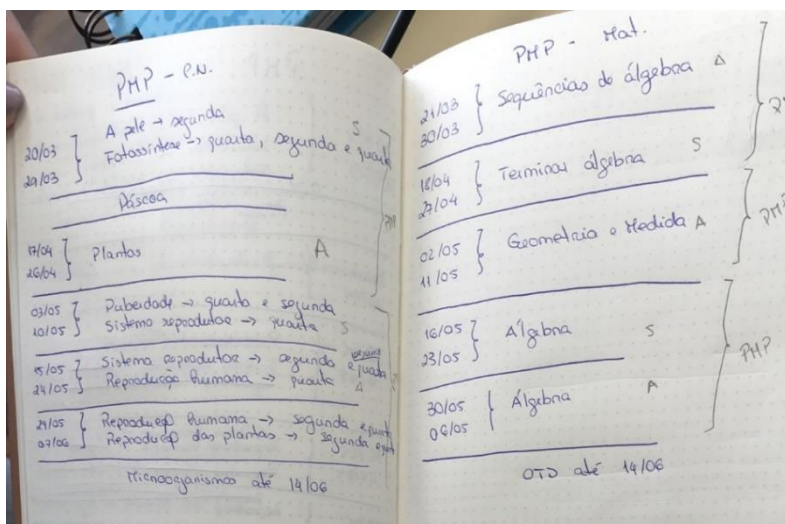 PMP - C.N.
20/03 A pele → segunda S
29/03 Fotossíntese → quarta, segunda e quarta
Páscoa
17/04
26/04 Plantas A
03/05 Puberdade → quarta e segunda
10/05 Sistema reprodutor → quarta S
15/05 Sistema reprodutor → segunda e quarta
24/05 Reprodução humana → quarta A
29/05 Reprodução humana → segunda e quarta
07/06 Reprodução das plantas → segunda e
Microorganismos até 14/06
PMP - Mat.
21/03
30/03 Sequências de álgebra A
18/04
27/04 Terminar álgebra S
02/05
11/05 Geometria e Medida A
PMP
16/05
23/05 Álgebra S
PMP
30/05
06/05 Álgebra A
OTD até 14/06